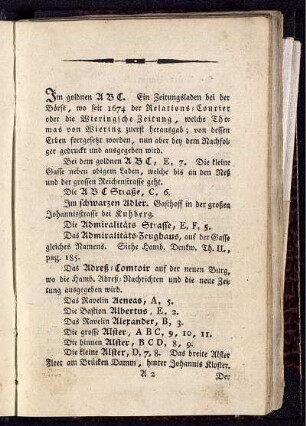 Im goldnen ABC. Ein Zeitungsladen bei der
Börse, wo seit 1674 der Relations-Courier
oder die Wieringische Zeitung, welche Tho
mas von Wiering zuerst herausgab; von dessen
Erben fortgesetzt worden, nun aber bey dem Nachfol
ger gedruckt und ausgegeben wird.
Bei dem goldnen ABC, E, 7. Die kleine
Gasse neben obigem Laden, welche bis an den Neß
und der grossen Reichenstraße geht.
Die ABC Straße, C, 6.
Im schwarzen Adler. Gasthoff in der großen
Johannisstraße bei Kuhberg.
Die Admiralitäts Strasse, E, F, 5.
Das Admiralitäts-Zeughaus, auf der Gasse
gleiches Namens. Siehe Hamb. Denkw. Th. II.,
pag. 185.
Das Adreß-Comtoir auf der neuen Burg,
wo die Hamb. Adreß-Nachrichten und die neue Zei
tung ausgegeben wird.
Das Ravelin Aeneas, A, 5.
Die Bastion Albertus, E, 2.
Das Ravelin Alexander, B, 3.
Die grosse Alster, A B C, 9, 10, 11.
Die binnen Alster, B C D, 8, 9.
Die kleine Alster, D, 7, 8. Das breite Alster
Fleet am Brücken Damm, hinter Johannis Kloster.
A 2
Der